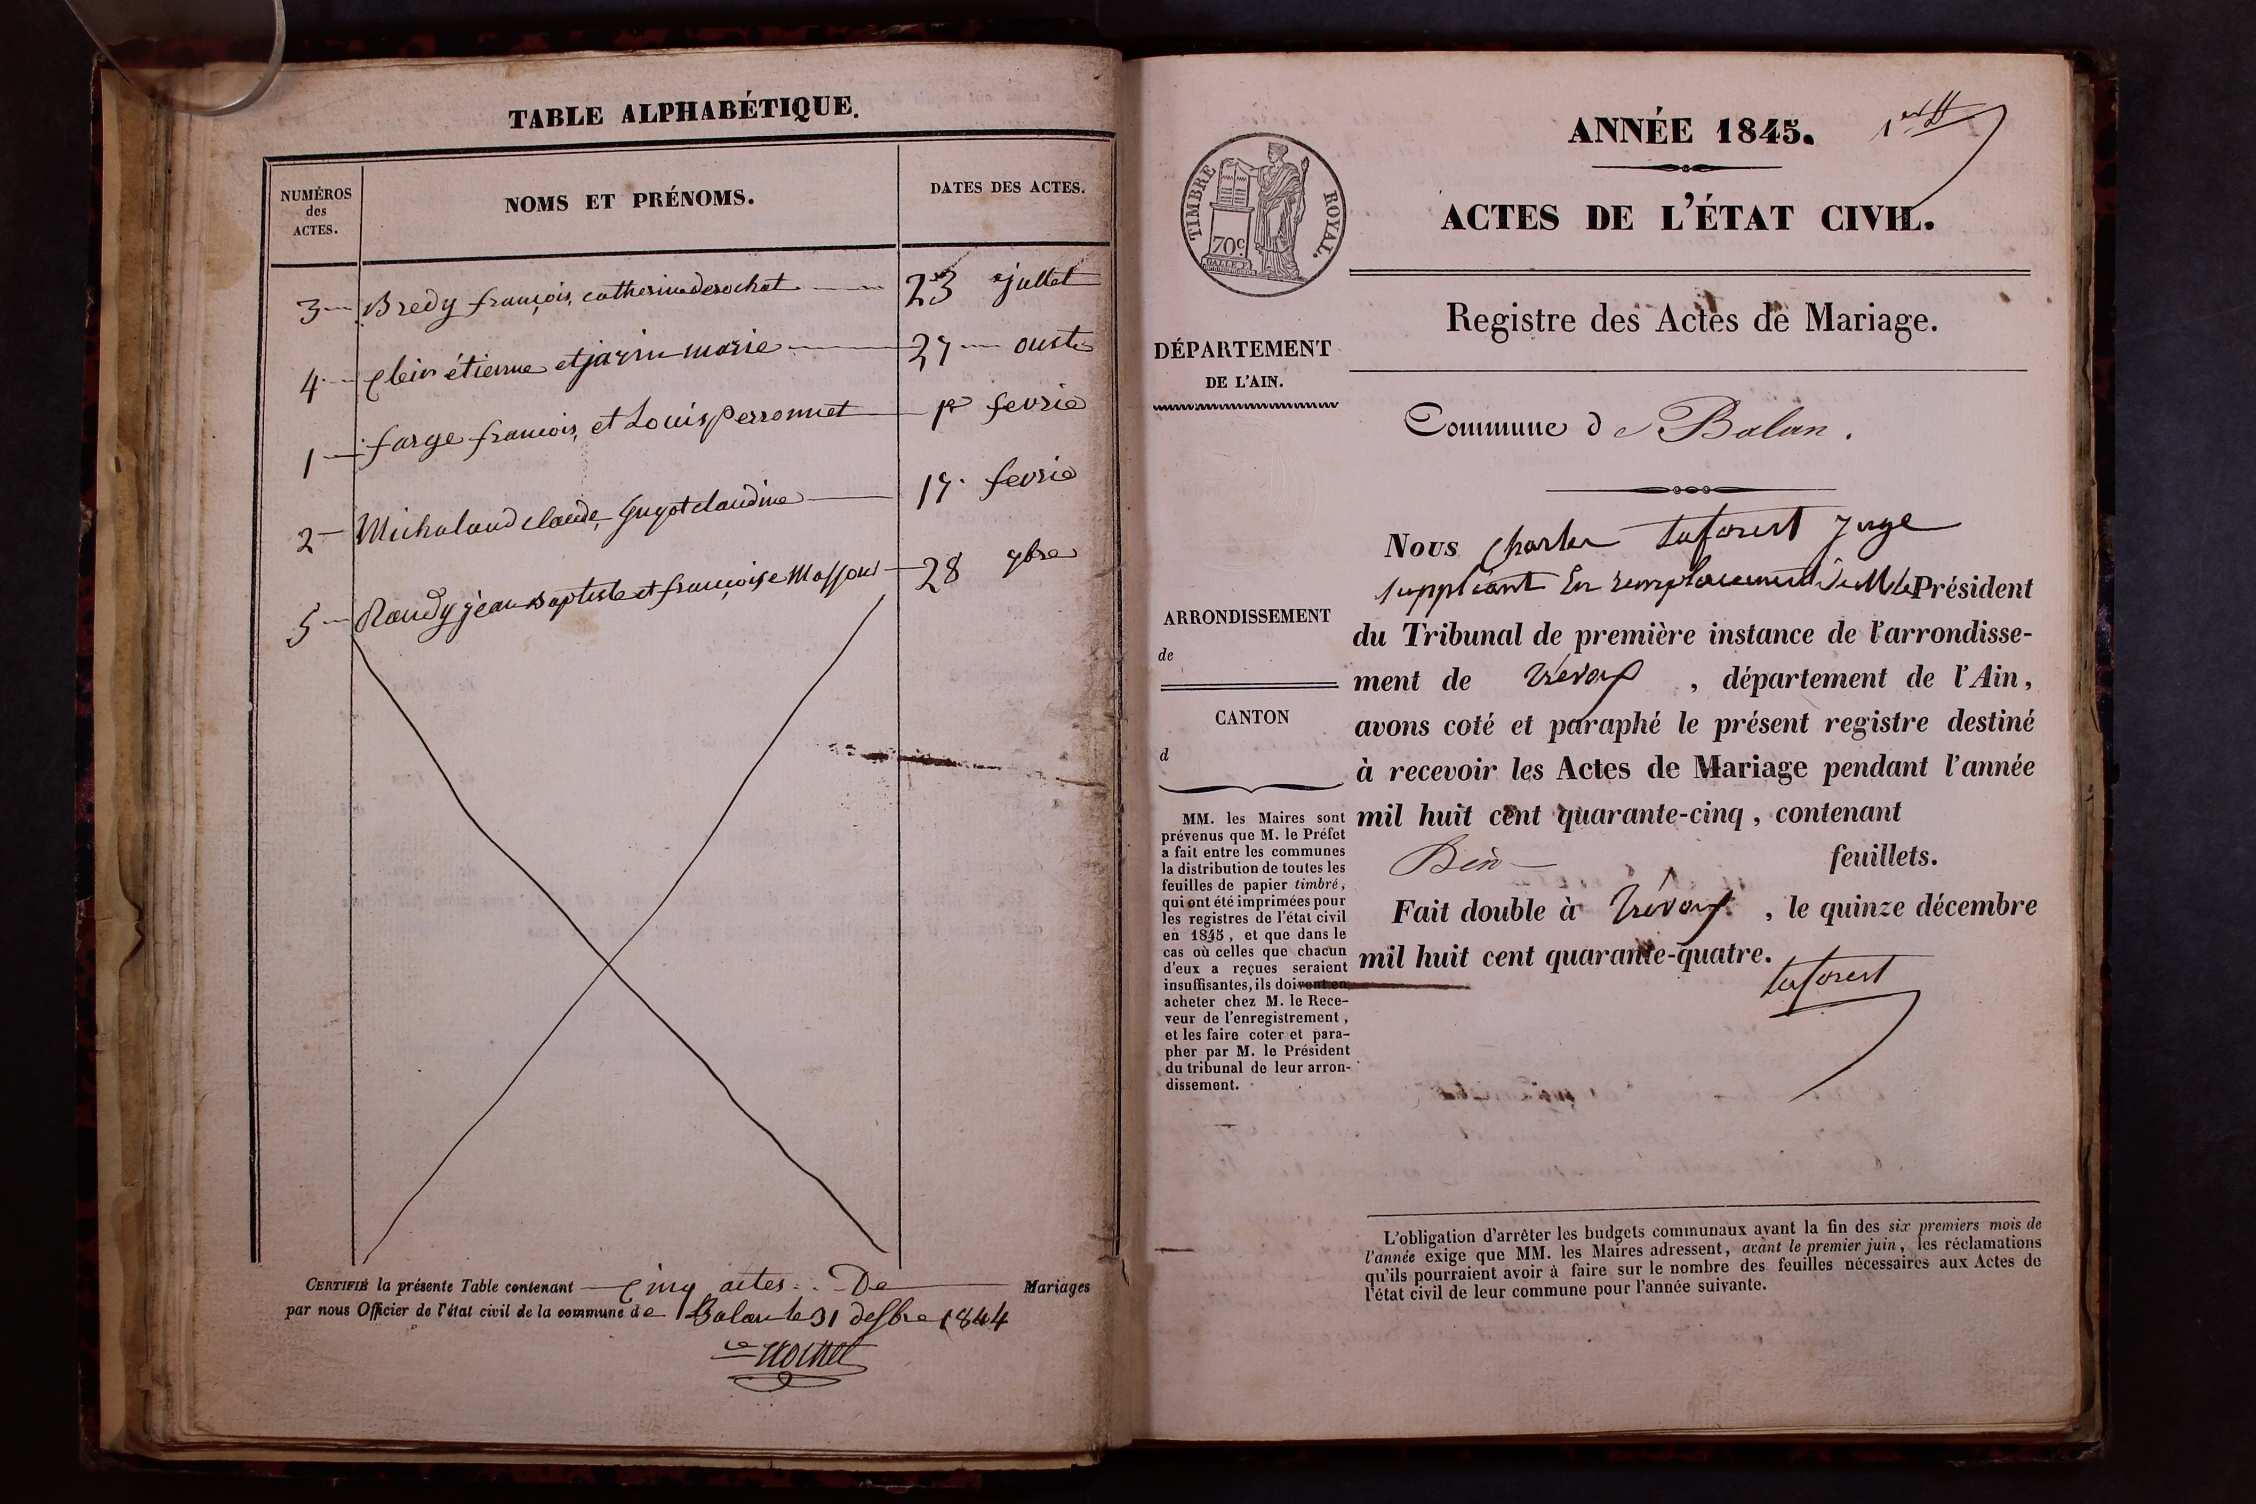 TABLE ALPHABÉTIQUE.
NUMÉROS
des
ACTES.
NOMS ET PRÉNOMS.
DATES DES ACTES.
3 Bredy françois, catherine derochat 23 jullet
4 Clein étienne et jarin marie 27 oust
1 farge francois, et Louis perronnet 1er fevrie
2 Michaland claude, Guyot claudine 17 fevrie
5 Raudy jean Baptiste et françoise Massou 28 9bre
CERTIFIÉ la présente Table contenant Cinq actes De Mariages
par nous Officier de l'état civil de la commune de Balan le 31 desbre 1844
ANNÉE 1845.
1er
TIMBRE ROYAL.
70c
ACTES DE L'ÉTAT CIVIL.
Registre des Actes de Mariage.
DÉPARTEMENT
DE L'AIN.
Commune de Balan.
ARRONDISSEMENT
de
CANTON
d
MM. les Maires sont
prévenus que M. le Préfet
a fait entre les communes
la distribution de toutes les
feuilles de papier timbré,
qui ont été imprimées pour
les registres de l'état civil
en 1845, et que dans le
cas où celles que chacun
d'eux a reçues seraient
insuffisantes, ils doivent en
acheter chez M. le Rece-
veur de l'enregistrement,
et les faire coter et para-
pher par M. le Président
du tribunal de leur arron-
dissement.
Nous Charles Laforest Juge
suppléant En remplacement de M. le Président
du Tribunal de première instance de l'arrondisse-
ment de Trévoux, département de l'Ain,
avons coté et paraphé le présent registre destiné
à recevoir les Actes de Mariage pendant l'année
mil huit cent quarante-cinq, contenant
feuillets.
Fait double à Trévoux, le quinze décembre
mil huit cent quarante-quatre.
Laforest
L'obligation d'arrêter les budgets communaux avant la fin des six premiers mois de
l'année exige que MM. les Maires adressent, avant le premier juin, les réclamations
qu'ils pourraient avoir à faire sur le nombre des feuilles nécessaires aux Actes de
l'état civil de leur commune pour l'année suivante.